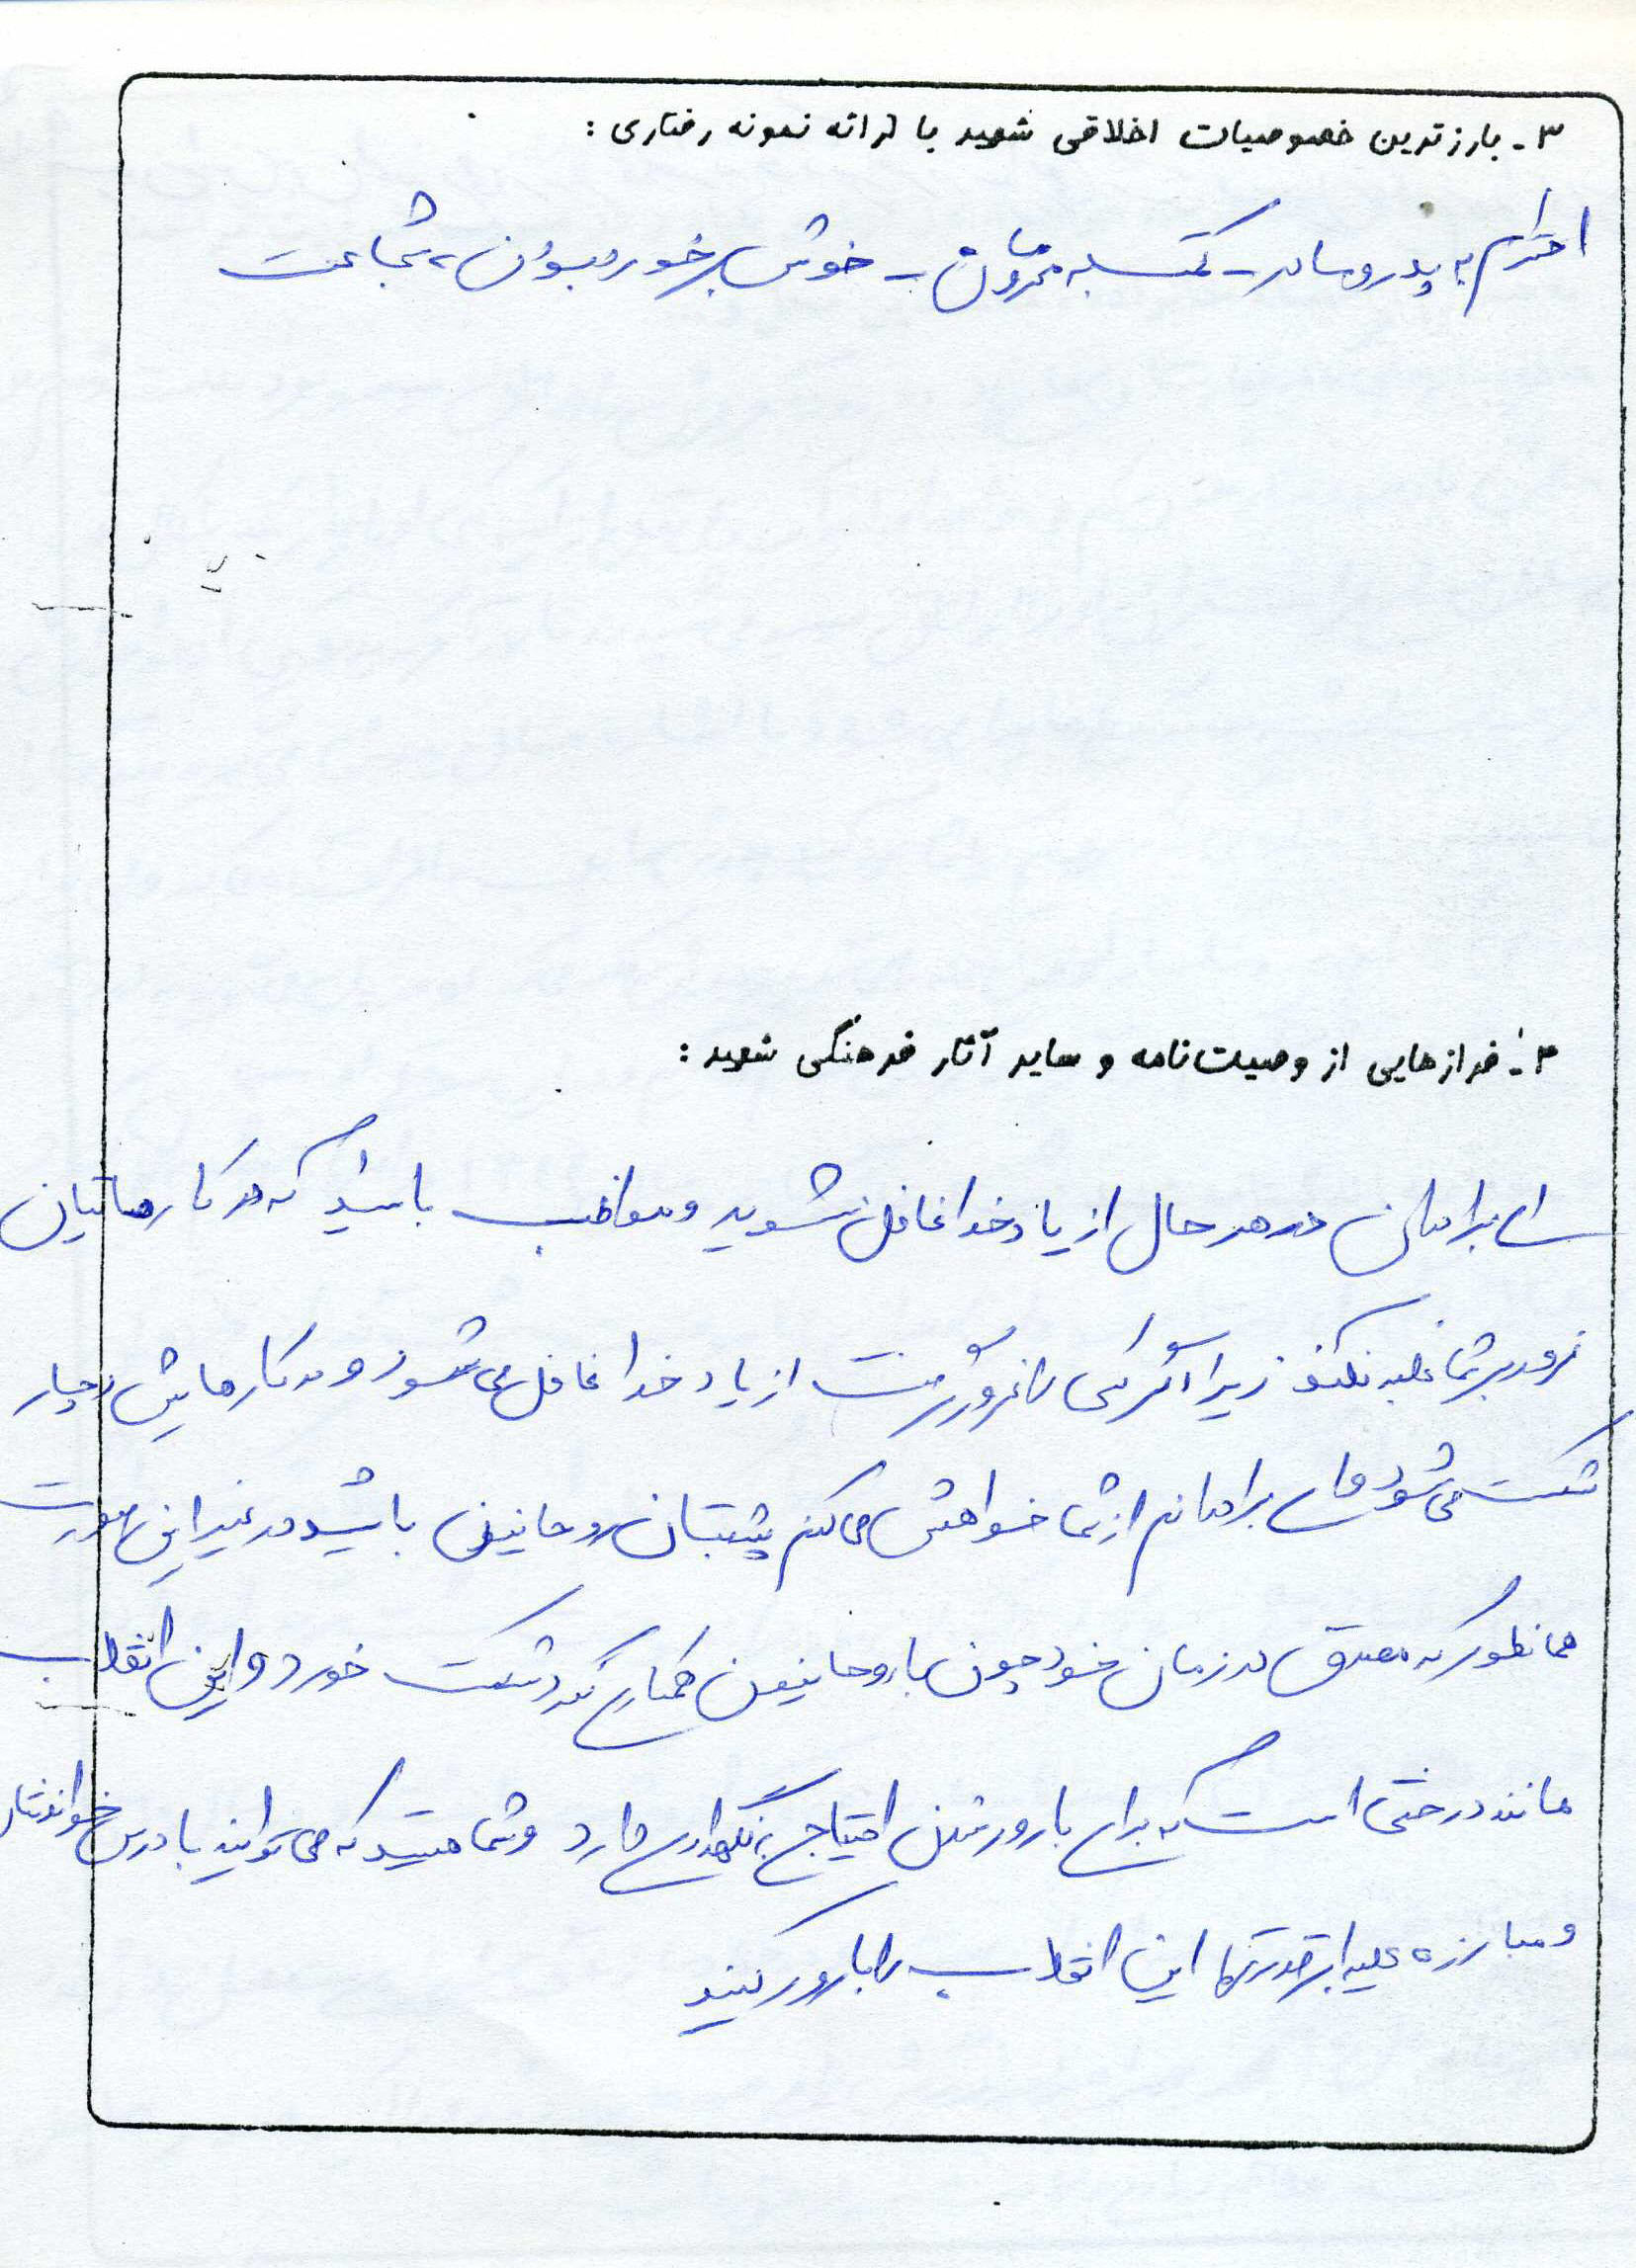 ۳ـ بارزترین خصوصیات اخلاقی شهید با ارائه نمونه رفتاری :
احترام به پدر و مادر - کمک به محرومان - خوش برخورد بودن، شجاعت
۴ـ فرازهایی از وصیت‌نامه و سایر آثار فرهنگی شهید :
ای برادران در هر حال از یاد خدا غافل نشوید و مواظب باشید که در کارهایتان
غرور بر شما غلبه نکند زیرا اگر کسی را غرور گرفت از یاد خدا غافل می شود و در کارهایش دچار
شکست می شود و ای برادرانم از شما خواهش می کنم پشتیبان روحانیون باشید در غیر این صورت
همانطور که مصدق در زمان خود چون با روحانیون همکاری نکرد شکست خورد و این انقلاب
مانند درختی است که برای بارور شدن احتیاج به نگهداری دارد و شما هستید که می توانید با درس خواندنتان
و مبارزه علیه ابرقدرتها این انقلاب را بارور کنید